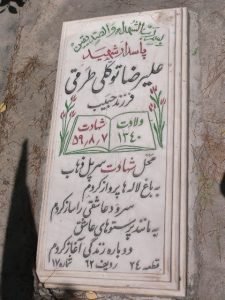 پاسدار شهید
علیرضا توکلی طرقی
فرزند حبیب
ولادت
۱۳۴۰
شهادت
۵۹،۸،۷
محل شهادت سرپل ذهاب
به باغ لاله ها پرواز کردم
سرود عاشقی را ساز کردم
به مانند پرستوهای عاشق
دوباره زندگی آغاز کردم
قطعه ۲۴ ردیف ۶۲ شماره ۱۷